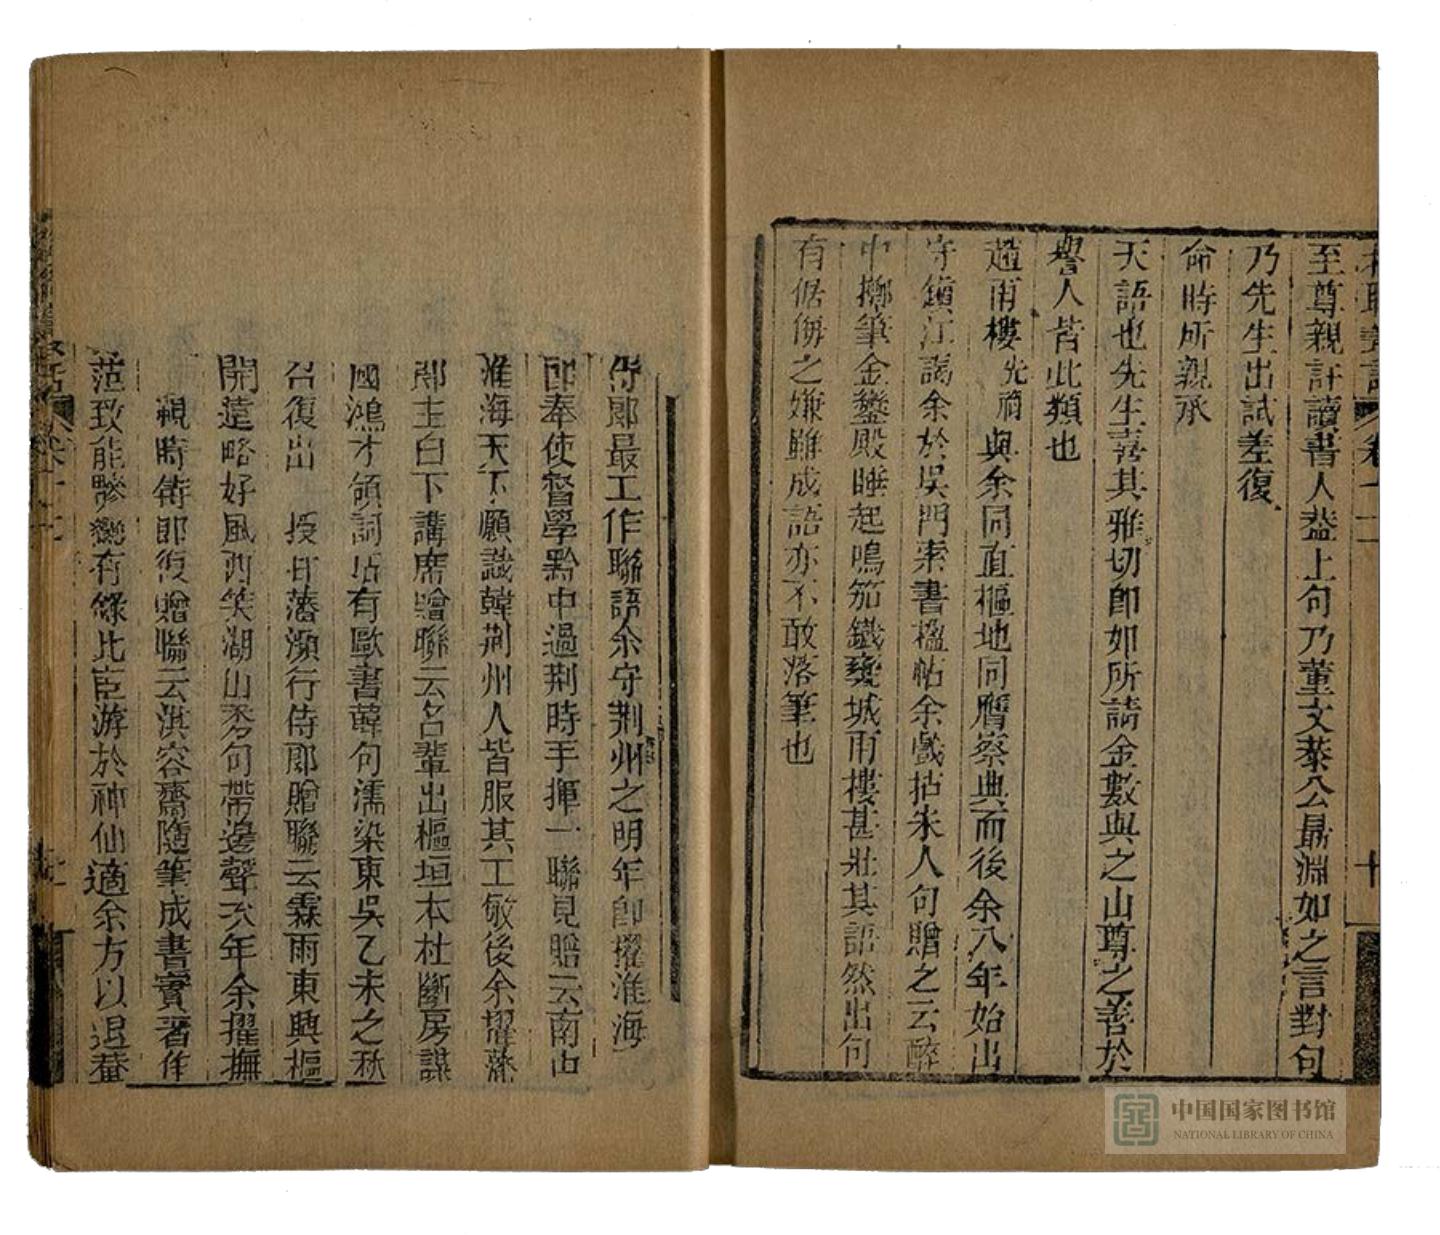 至尊親許讀書人蓋上句乃董文恭公最淵如之言對句
乃先生出試差復
命時所親承
天語也先生喜其雅切即如所請金數與之山尊之善於
譽人皆此類也
趙甫樓先 與余同直樞地同膺察典而後余八年始出
守鎮江謁余於吳門索書楹帖余戲拈朱人句贈之云醉
中擲筆金鑾殿睡起鳴笳鐵甕城甫樓甚壯其語然出句
有倨侮之嫌雖成語亦不敢落筆也
侍郎最工作聯語余守荆州之明年即擢淮海
即奉使督學黔中過荆時手揮一聯見贈云南山
淮海天下願識韓荆州人皆服其工敏後余擢藩
鄰主白下講席贈聯云名輩出樞垣本杜斷房謀
國鴻才領詞 有歐書韓句濡染東吳乙未之秋
召復出 授 藩瀕行侍郎贈聯云霖雨東興樞
開遠略好風西笑湖山秀句帶邊聲次年余擢撫
親時侍郎復贈聯云淇容齋隨筆成書實著作
范致能驂鸞有錄比臣游於神仙適余方以退菴